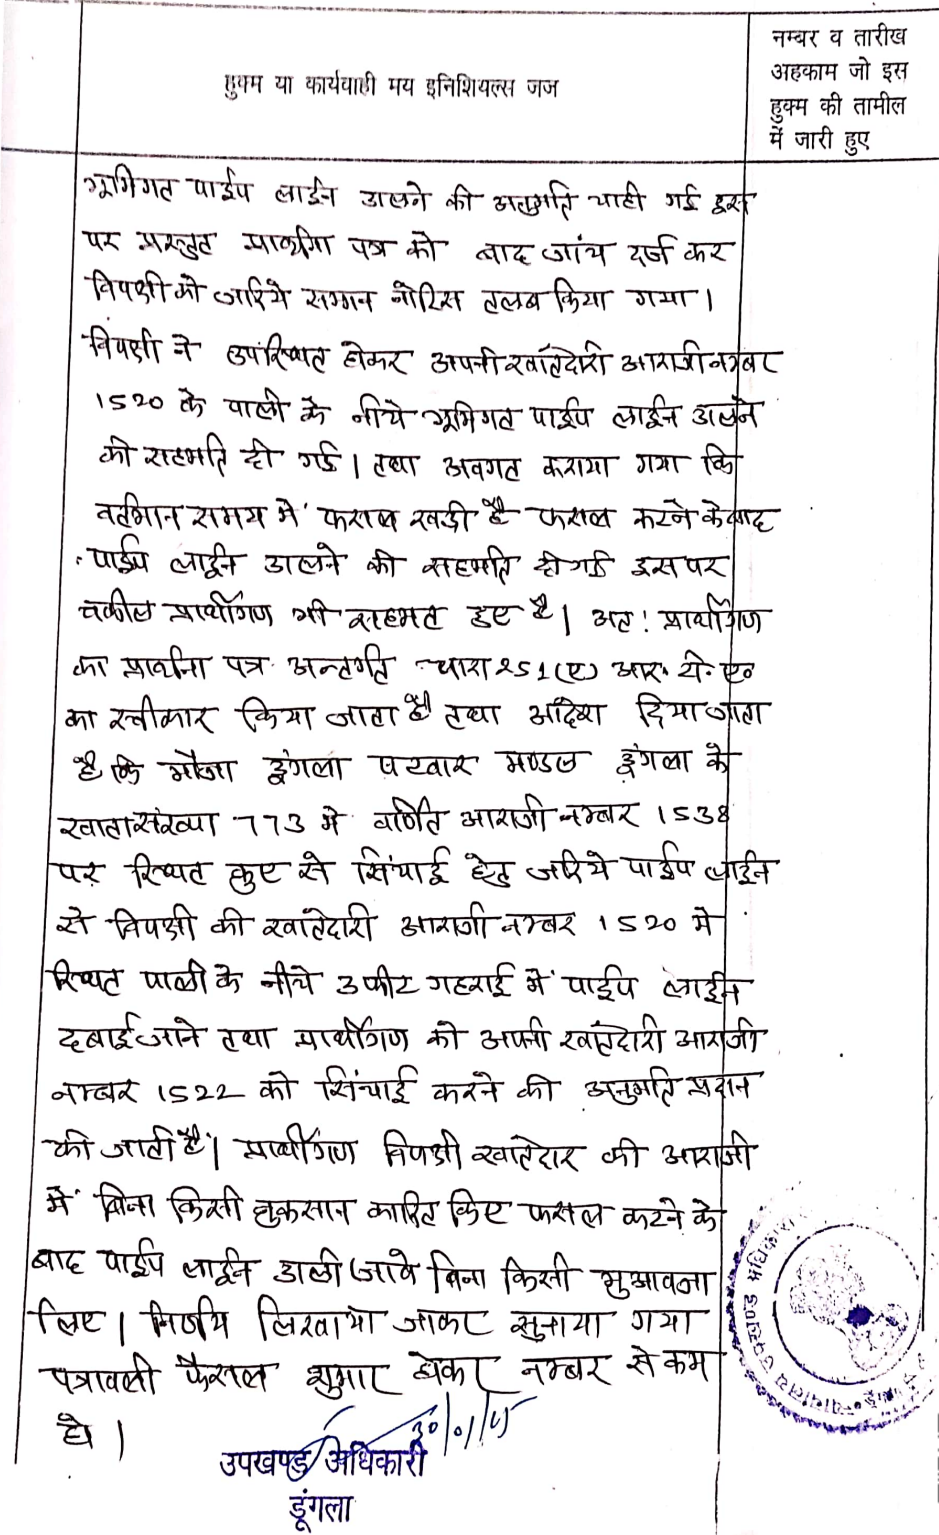 हुक्म या कार्यवाही मय इनिशियल्स जज
नम्बर व तारीख
अहकाम जो इस
हुक्म की तामील
में जारी हुए
भूमिगत पाईप लाईन डालने की अनुमति चाही गई इस
पर प्रस्तुत प्रार्थना पत्र को बाद जांच दर्ज कर
विपक्षी को जरिये सम्मन नोटिस तलब किया गया।
विपक्षी ने उपस्थित होकर अपनी खातेदारी आराजी नम्बर
1520 के पाली के नीचे भूमिगत पाईप लाईन डालने
की सहमति दी गई। तथा अवगत कराया गया कि
वर्तमान समय में फसल खडी है फसल कटने के बाद
पाईप लाईन डालने की सहमति दी गई इस पर
वकील प्रार्थीगण भी सहमत हुए है। अतः प्रार्थीगण
का प्रार्थना पत्र अन्तर्गत धारा 251(ए) आर. टी. एक्ट
का स्वीकार किया जाता है तथा आदेश दिया जाता
है कि मौजा डूंगला पटवार मण्डल डूंगला के
खाता संख्या 773 में वर्णित आराजी नम्बर 1538
पर स्थित कुए से सिंचाई हेतु जरिये पाईप लाईन
से विपक्षी की खातेदारी आराजी नम्बर 1520 में
स्थित पाली के नीचे 3 फीट गहराई में पाईप लाईन
दबाई जाने तथा प्रार्थीगण को अपनी खातेदारी आराजी
नम्बर 1522 को सिंचाई करने की अनुमति प्रदान
की जाती है। प्रार्थीगण विपक्षी खातेदार की आराजी
में बिना किसी नुकसान कारित किए फसल कटने के
बाद पाईप लाईन डाली जावे बिना किसी मुआवजा
लिए। निर्णय लिखाया जाकर सुनाया गया
पत्रावली फैसल शुमार होकर नम्बर से कम
हो।
उपखण्ड अधिकारी
डूंगला